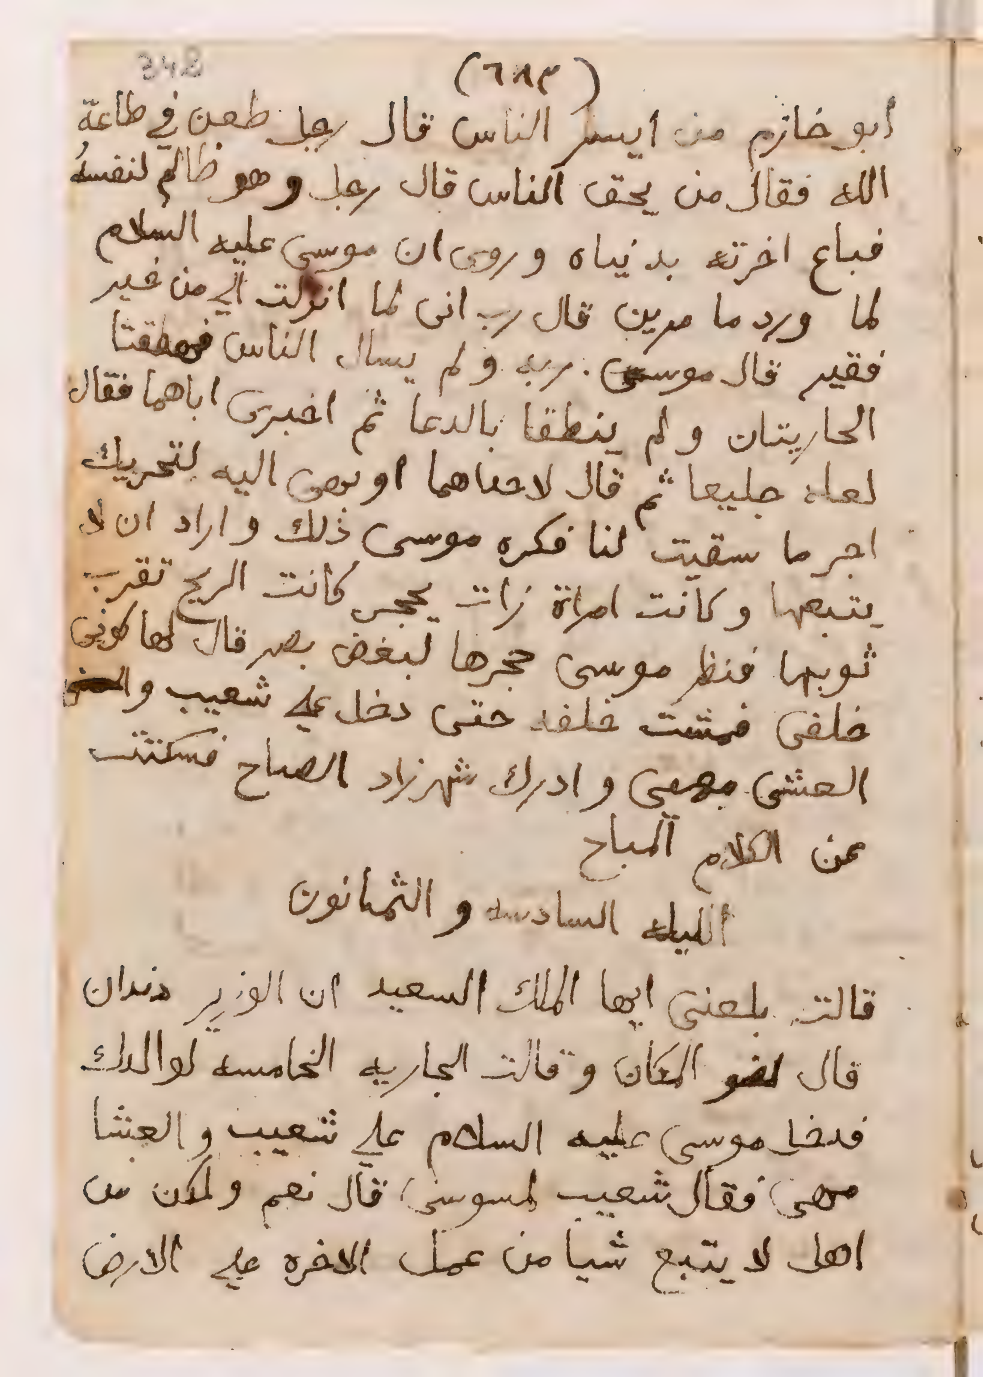 348
(٦٨٣)
أبو خازم من ايسر الناس قال رجل طعن في طاعة
الله فقال من يحق الناس قال رجل وهو ظالم لنفسهُ
فباع اخرته بدنياه وروى ان موسى عليه السلام
لما ورد ما مدين قال رب انى لما انزلت الي من خير
فقير قال موسى ربه ولم يسال الناس
الجاريتان ولم ينطقا بالدعا ثم اخبرى اباهما فقال
لعله جليعا ثم قال لاحداهما اليه لتجريك
اجر ما سقيت لنا فكره موسى ذلك واراد ان لا
يتبعها وكانت امراة ذات كانت الريح تقرب
ثوبها فنظر موسى حجرها لبغض بصر قال لها كونى
خلفى فمشت خلفه حتى دخل علي شعيب و
العشى مهمى وادرك شهرزاد الصباح فسكتت
عن الكلام المباح
الليله السادسه و الثمانون
قالت بلعنى ايها الملك السعيد ان الوزير دندان
قال المكان وقالت الجاريه الخامسه لوالدك
فدخل موسى عليه السلام علي شعيب والعشا
مهى فقال شعيب لموسى قال نعم ولكن من
اهل لا يتبع شيا من عمل الاخره علي الارض